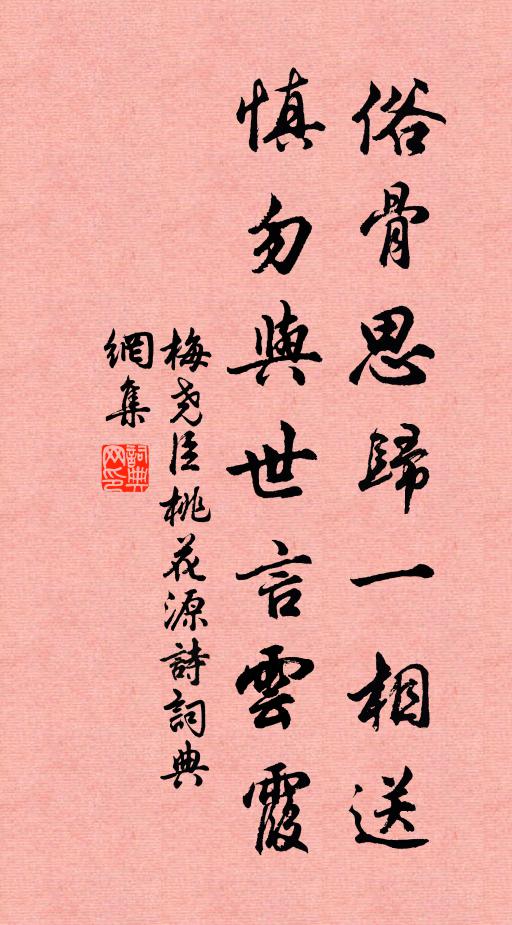 俗骨思歸一相送
慎勿與世言雲霞
梅尧臣桃花源詩詞典
網集
詞典
网印